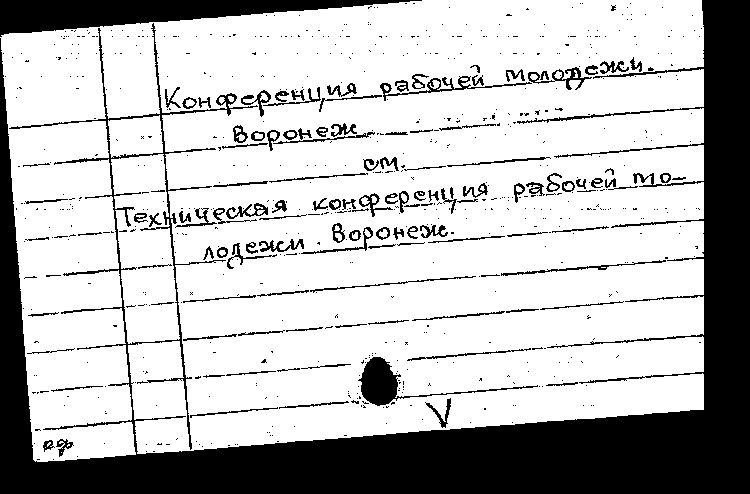 Конференция рабочей молодежи.
Воронеж
см.
Техническая конференция рабочей мо-
лодежи. Воронеж.